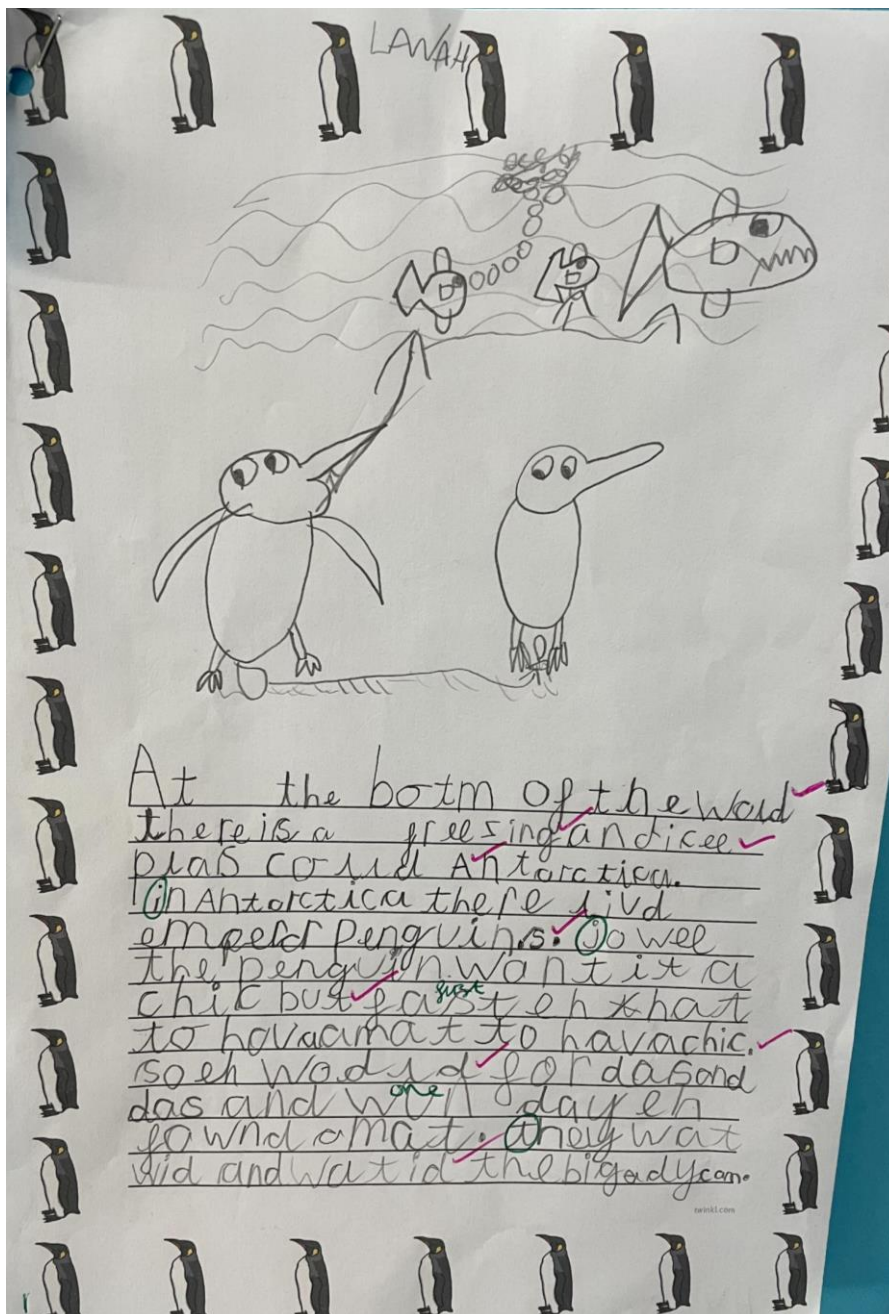 LANAH
At the botm of the word
there is a freezing and icee
plas colld Antarctica.
in Antarctica there livd
emperor penguins. Jowee
the penguin want it a
first
chic but fast eh that
to hava amat to hava chic.
so eh wodld for das and
one
das and wun day eh
fownd a mat. they wat
wid and wat id the big ady cam.
twinkl.com